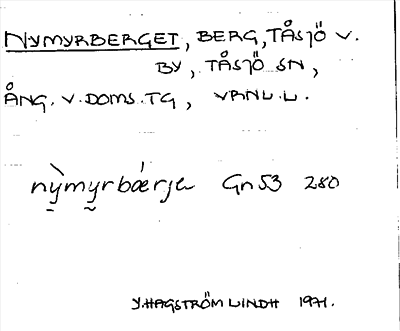 NYMYRBERGET, BERG, TÅSJÖ V.
BY, TÅSJÖ SN,
ÅNG. V. DOMS. TG, VRNL. L.
nỳ̠myr̰bǽrjɐ Gn 53 280
Y. HAGSTRÖM LINDH 1971.